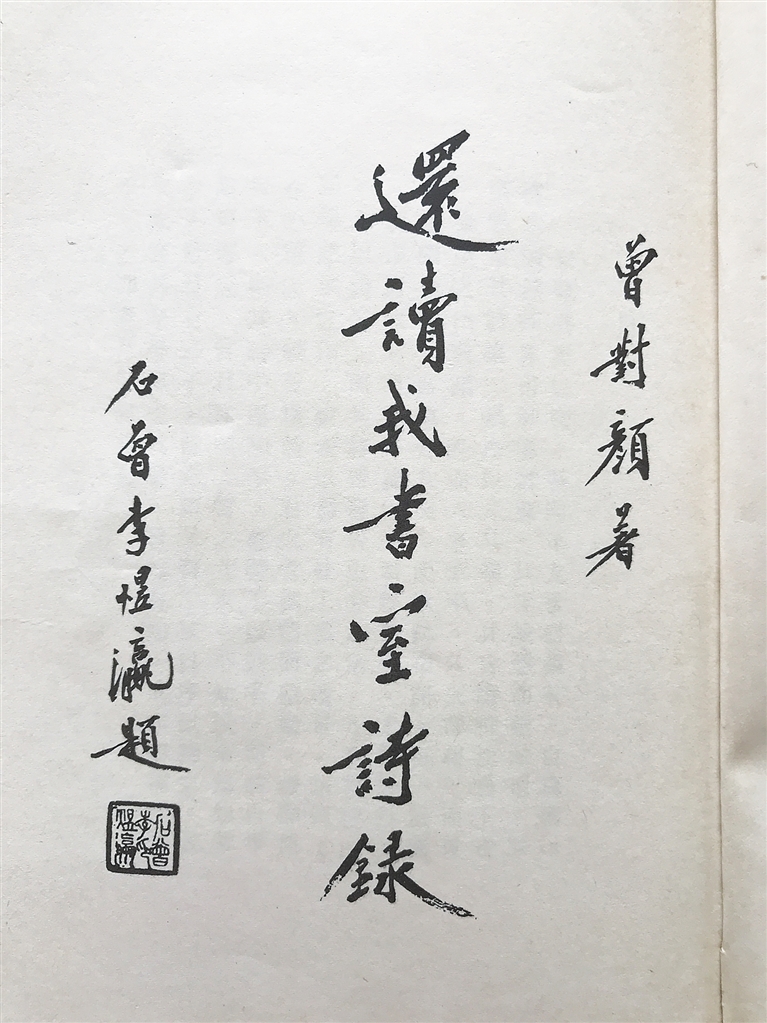 曾對顏著
還讀我書室詩錄
石曾李煜瀛題
石曾
李氏
煜瀛